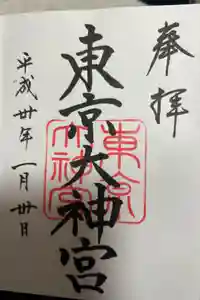 奉拝
東京大神宮
東京大神宮
平成卅年一月卅日